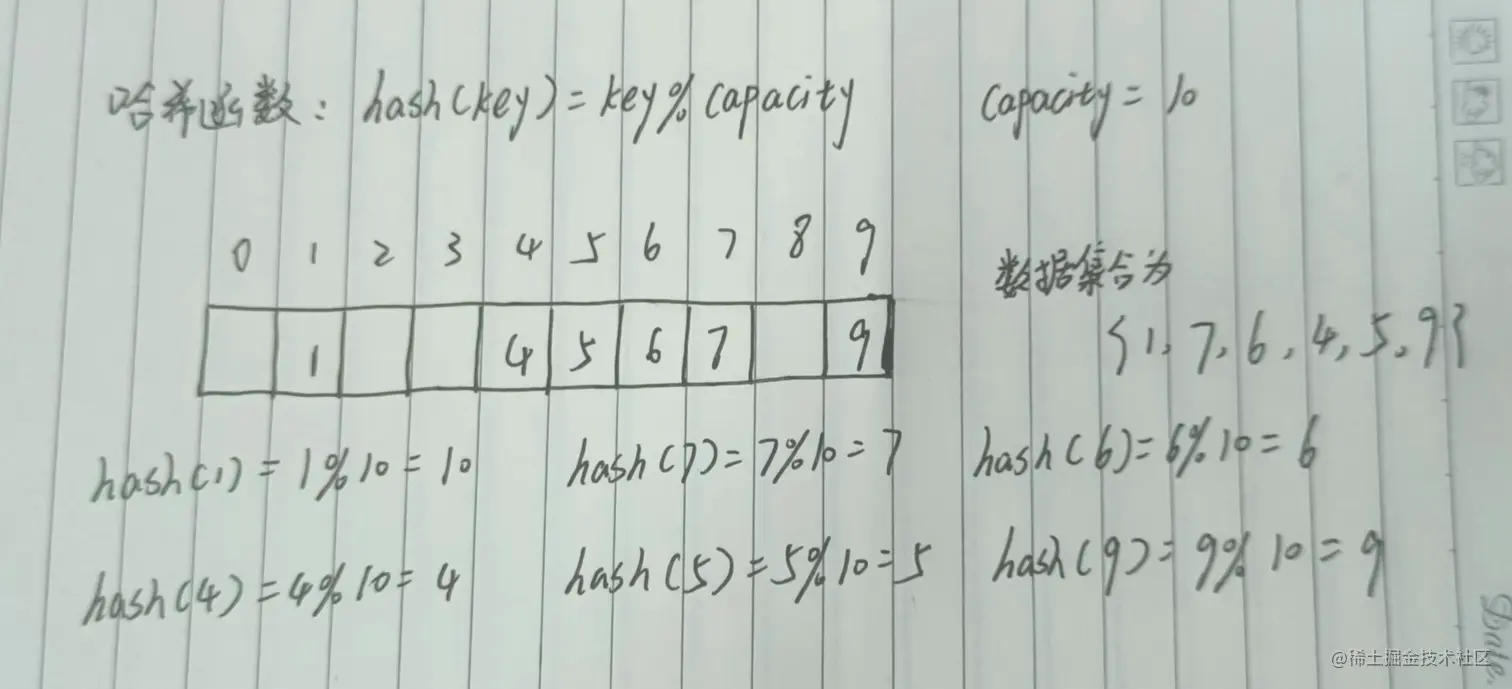 哈希函数: hash(key)=key%capacity capacity=10
0 1 2 3 4 5 6 7 8 9
数据集合为
1 4 5 6 7 9
{1,7,6,4,5,9}
hash(1)=1%10=10 hash(7)=7%10=7 hash(6)=6%10=6
hash(4)=4%10=4 hash(5)=5%10=5 hash(9)=9%10=9
Date.
@稀土掘金技术社区